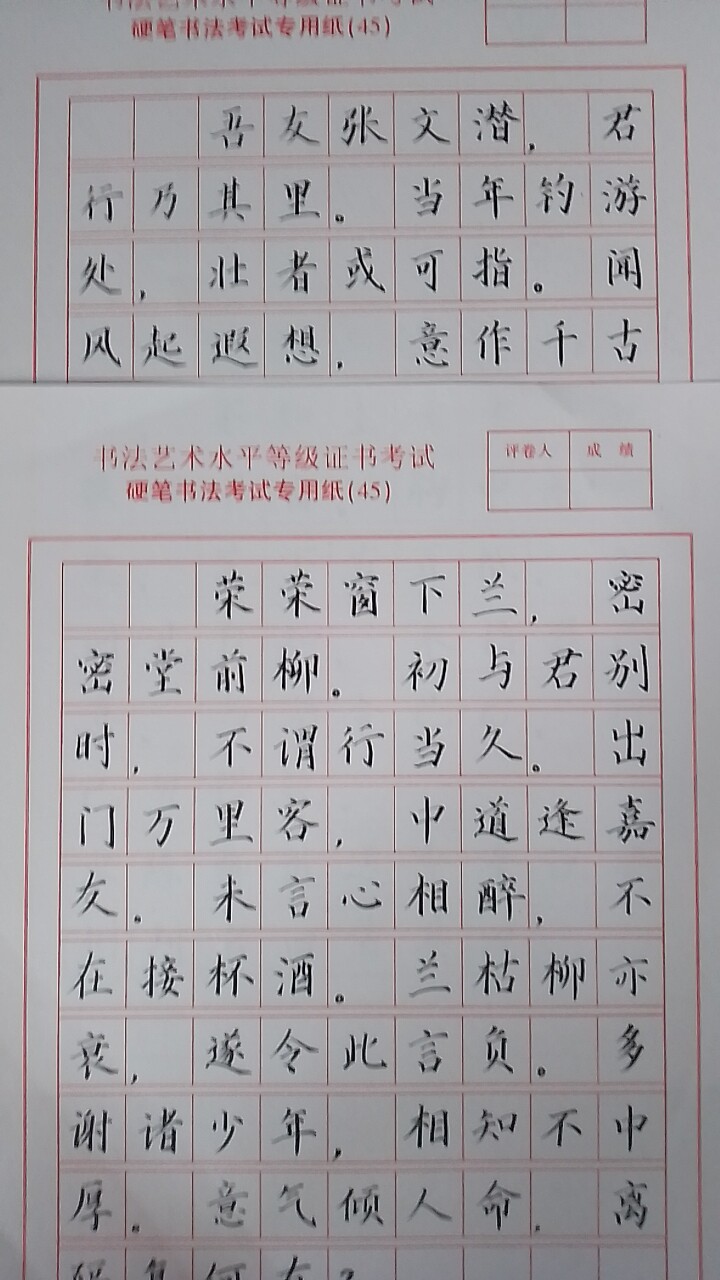 书法艺术水平等级证书考试
硬笔书法考试专用纸(45)
吾友张文潜，君
行乃其里。当年钓游
处，壮者或可指。闻
风起遐想，意作千古
书法艺术水平等级证书考试
硬笔书法考试专用纸(45)
评卷人 成绩
荣荣窗下兰，密
密堂前柳。初与君别
时，不谓行当久。出
门万里客，中道逢嘉
友。未言心相醉，不
在接杯酒。兰枯柳亦
衰，遂令此言负。多
谢诸少年，相知不中
厚。意气倾人命，离
隔复何有？